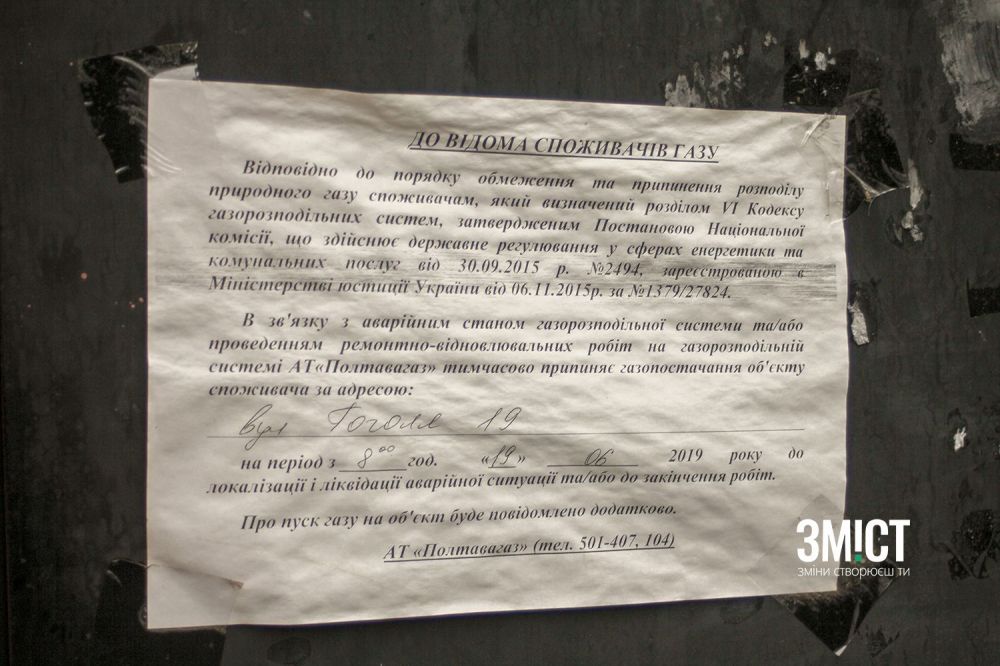 ДО ВІДОМА СПОЖИВАЧІВ ГАЗУ
Відповідно до порядку обмеження та припинення розподілу
природного газу споживачам, який визначений розділом VI Кодексу
газорозподільних систем, затвердженим Постановою Національної
комісії, що здійснює державне регулювання у сферах енергетики та
комунальних послуг від 30.09.2015 р. №2494, зареєстрованою в
Міністерстві юстиції України від 06.11.2015р. за №1379/27824.
В зв'язку з аварійним станом газорозподільної системи та/або
проведенням ремонтно-відновлювальних робіт на газорозподільній
системі АТ«Полтавагаз» тимчасово припиняє газопостачання об'єкту
споживача за адресою:
вул Гоголя 19
на період з 8 00 год. «19» 06 2019 року до
локалізації і ліквідації аварійної ситуації та/або до закінчення робіт.
Про пуск газу на об'єкт буде повідомлено додатково.
АТ «Полтавагаз» (тел. 501-407, 104)
ЗМІСТ
ЗМІНИ СТВОРЮЄШ ТИ